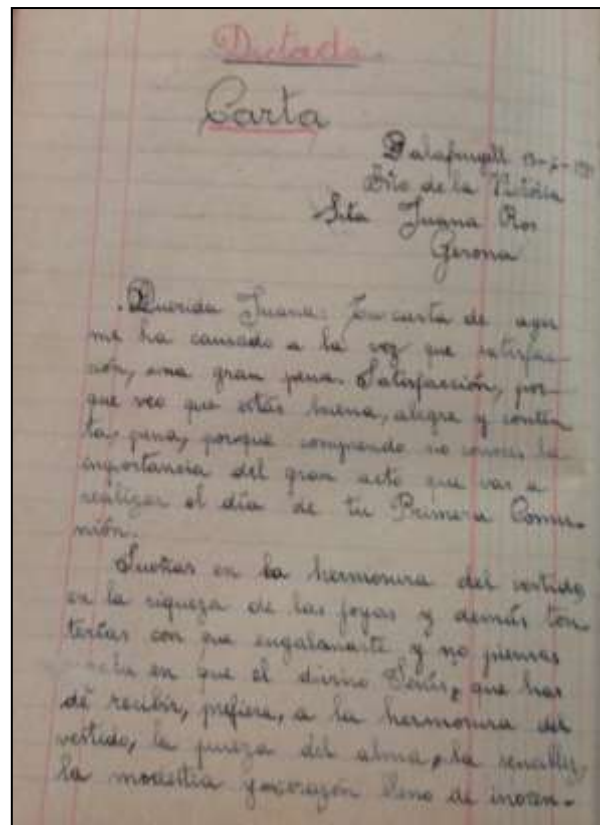 Dictado.
Carta
Palafrugell
Año de la Victoria
Srta Juana Ros
Gerona
Querida Juana: Tu carta de ayer
me ha causado a la vez que satisfac-
ción, una gran pena. Satisfacción, por-
que veo que estás buena, alegre y conten
ta, pena, porque comprendo no conoces la
importancia del gran acto que vas a
realizar el día de tu Primera Comu-
nión.
Sueñas en la hermosura del vestido,
en la riqueza de las joyas y demás ton
terías con que engalanarte y no piensas
en que el divino Jesús, que has
de recibir, prefiere, a la hermosura del
vestido, la pureza del alma, la sencillez,
la modestia y corazón lleno de inocen-